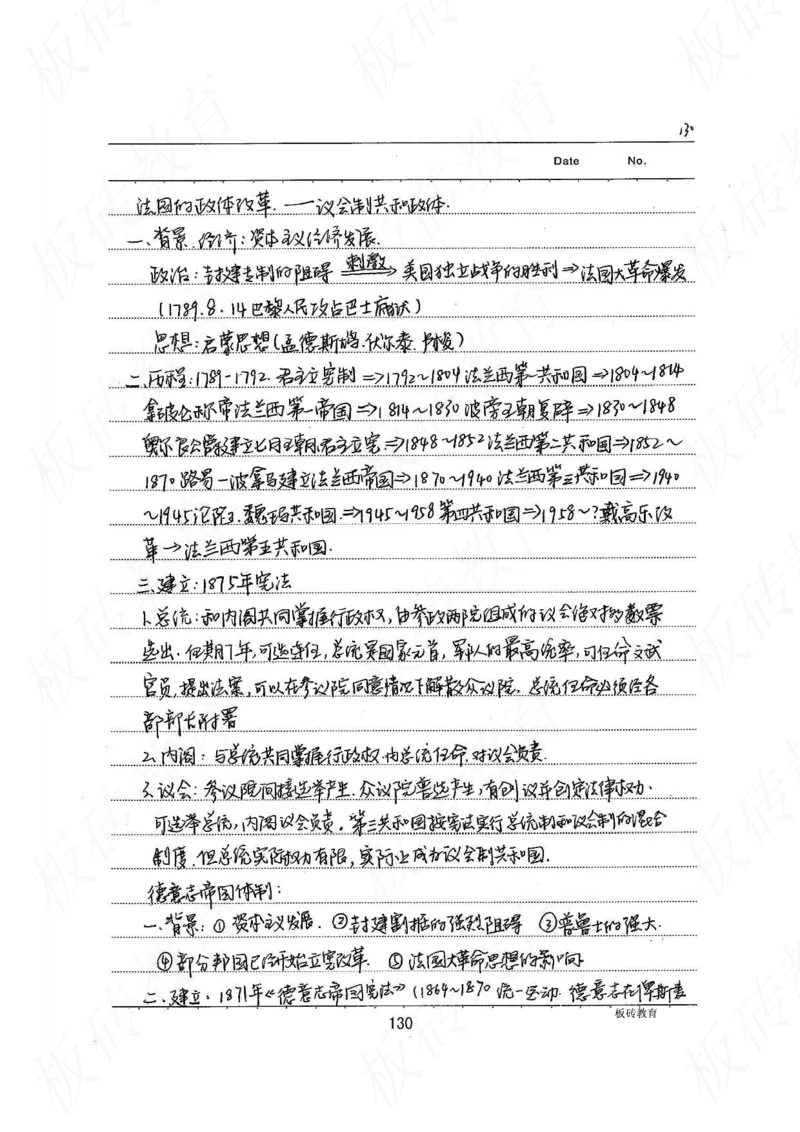 130
Date No.
法国的政体改革.——议会制共和政体.
一、背景.经济:资本主义经济发展.
政治:封建专制的阻碍 刺激 美国独立战争的胜利⇒法国大革命爆发
(1789.8.14巴黎人民攻占巴士底狱)
思想:启蒙思想(孟德斯鸠.伏尔泰.卢梭)
二.历程:1789-1792.君主立宪制⇒1792~1804法兰西第一共和国⇒1804~1814
拿破仑称帝法兰西第一帝国⇒1814~1830波旁王朝复辟⇒1830~1848
奥尔良公爵建立七月王朝君主立宪⇒1848~1852法兰西第二共和国⇒1852~
1870路易-波拿马建立法兰西帝国⇒1870~1940法兰西第三共和国⇒1940
~1945沦陷.魏玛共和国.⇒1945~1958第四共和国⇒1958~?戴高乐改
革→法兰西第五共和国.
三.建立:1875年宪法
1.总统:和内阁共同掌握行政权,由参政两院组成的议会绝对多数票
选出.任期7年,可选连任,总统是国家元首,军队的最高统率,可任命文武
官员,提出法案,可以在参议院同意情况下解散众议院.总统任命必须经各
部部长附署
2.内阁:与总统共同掌握行政权.由总统任命.对议会负责.
3.议会:参议院间接选举产生.众议院普选产生,有创议并创定法律权力.
可选举总统,内阁议会负责.第三共和国按宪法实行总统制和议会制的混合
制度.但总统实际权力有限,实际上成为议会制共和国.
德意志帝国体制:
一.背景:①资本主义发展.②封建割据的强烈阻碍 ③普鲁士的强大.
④部分邦国已经开始立宪改革.⑤法国大革命思想的影响
二.建立.1871年《德意志帝国宪法》(1864~1870统一运动.德意志在俾斯麦
板砖教育
130